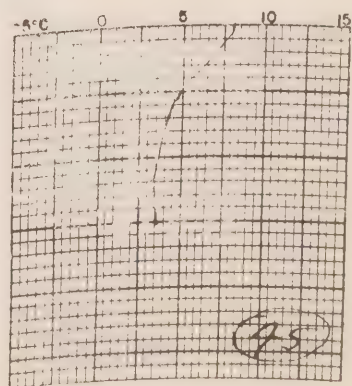 -5°C 0 5 10 15
45